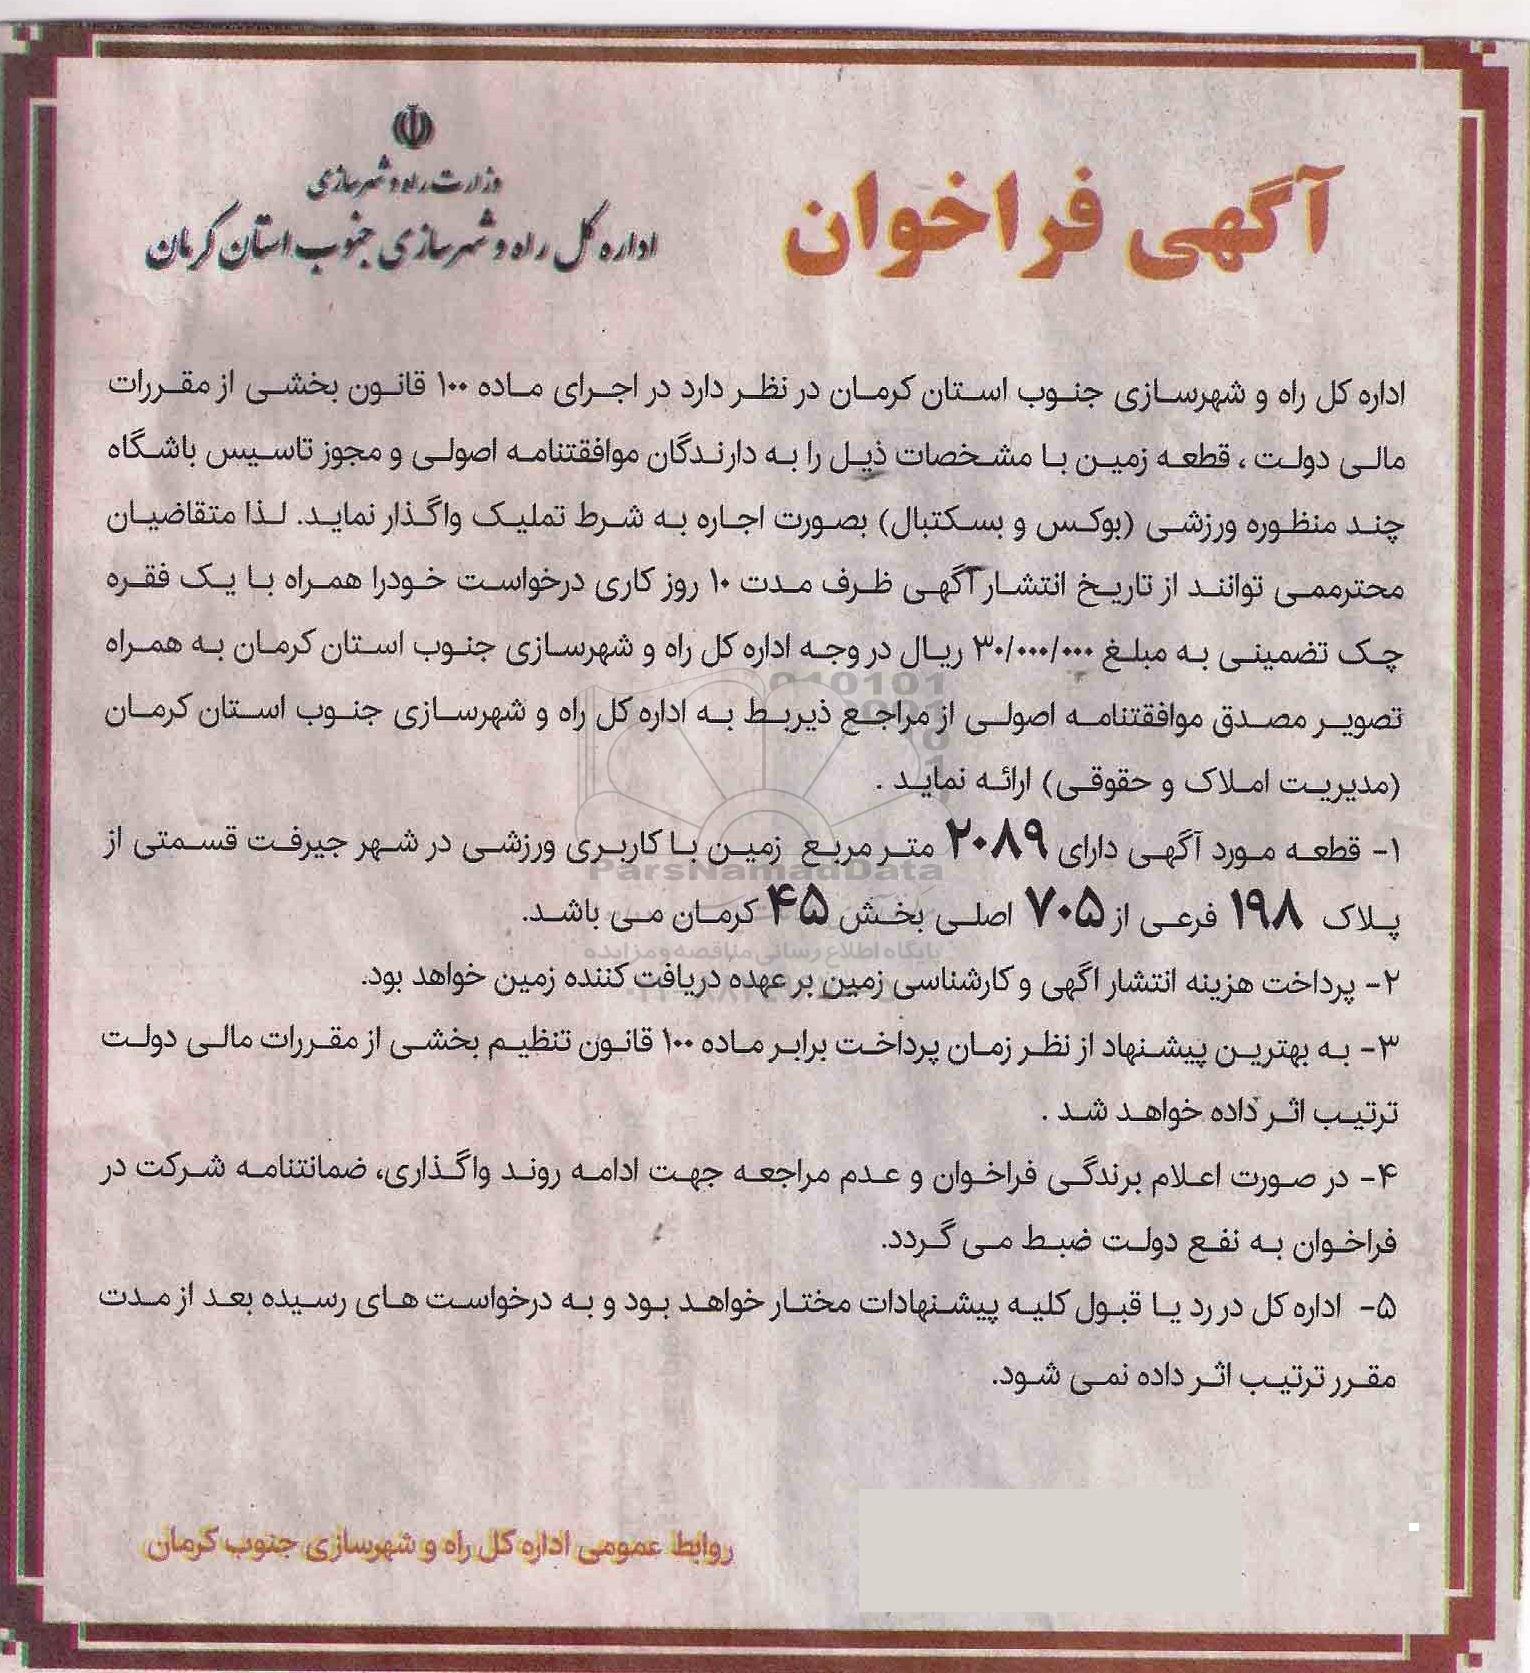 وزارت راه و شهرسازی
اداره کل راه و شهرسازی جنوب استان کرمان
آگهی فراخوان
اداره کل راه و شهرسازی جنوب استان کرمان در نظر دارد در اجرای ماده ۱۰۰ قانون بخشی از مقررات
مالی دولت ، قطعه زمین با مشخصات ذیل را به دارندگان موافقتنامه اصولی و مجوز تاسیس باشگاه
چند منظوره ورزشی (بوکس و بسکتبال) بصورت اجاره به شرط تملیک واگذار نماید. لذا متقاضیان
محترممی توانند از تاریخ انتشار آگهی ظرف مدت ۱۰ روز کاری درخواست خودرا همراه با یک فقره
چک تضمینی به مبلغ ۳۰/۰۰۰/۰۰۰ ریال در وجه اداره کل راه و شهرسازی جنوب استان کرمان به همراه
تصویر مصدق موافقتنامه اصولی از مراجع ذیربط به اداره کل راه و شهرسازی جنوب استان کرمان
(مدیریت املاک و حقوقی) ارائه نماید .
۱- قطعه مورد آگهی دارای ۲۰۸۹ متر مربع زمین با کاربری ورزشی در شهر جیرفت قسمتی از
پلاک ۱۹۸ فرعی از ۷۰۵ اصلی بخش ۴۵ کرمان می باشد.
۲- پرداخت هزینه انتشار اگهی و کارشناسی زمین بر عهده دریافت کننده زمین خواهد بود.
۳- به بهترین پیشنهاد از نظر زمان پرداخت برابر ماده ۱۰۰ قانون تنظیم بخشی از مقررات مالی دولت
ترتیب اثر داده خواهد شد .
۴- در صورت اعلام برندگی فراخوان و عدم مراجعه جهت ادامه روند واگذاری، ضمانتنامه شرکت در
فراخوان به نفع دولت ضبط می گردد.
۵- اداره کل در رد یا قبول کلیه پیشنهادات مختار خواهد بود و به درخواست های رسیده بعد از مدت
مقرر ترتیب اثر داده نمی شود.
روابط عمومی اداره کل راه و شهرسازی جنوب کرمان
ParsNamadData
پایگاه اطلاع رسانی مناقصه و مزایده